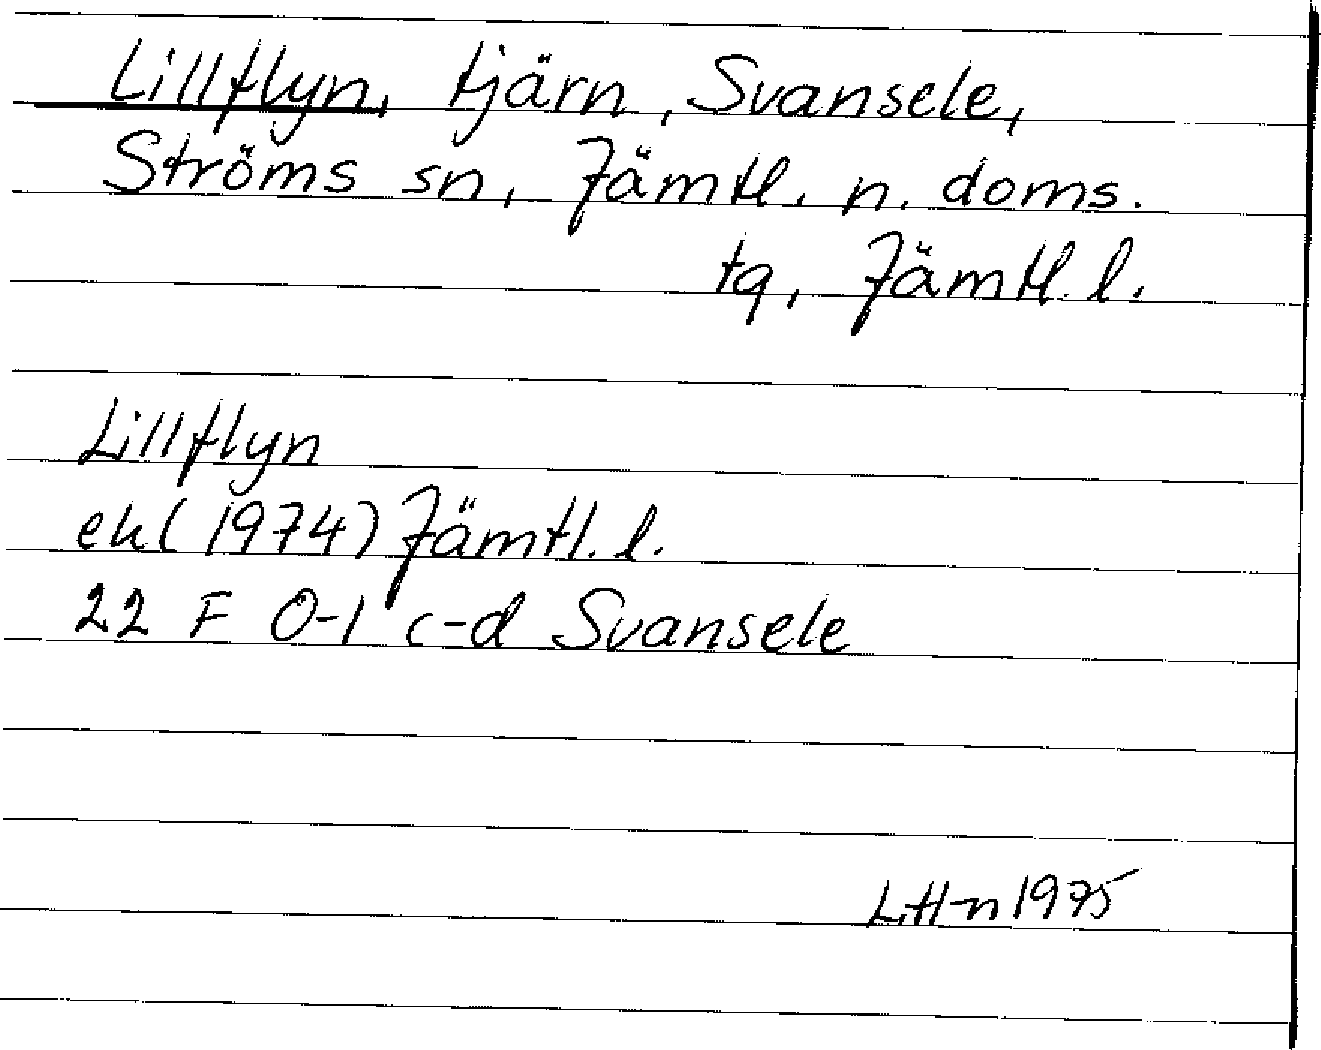 Lillflyn, tjärn, Svansele,
Ströms sn, Jämtl. n. doms.
tg, Jämtl. l.
Lillflyn
ek (1974) Jämtl. l.
22 F 0-1 c-d Svansele
LH-n 1975